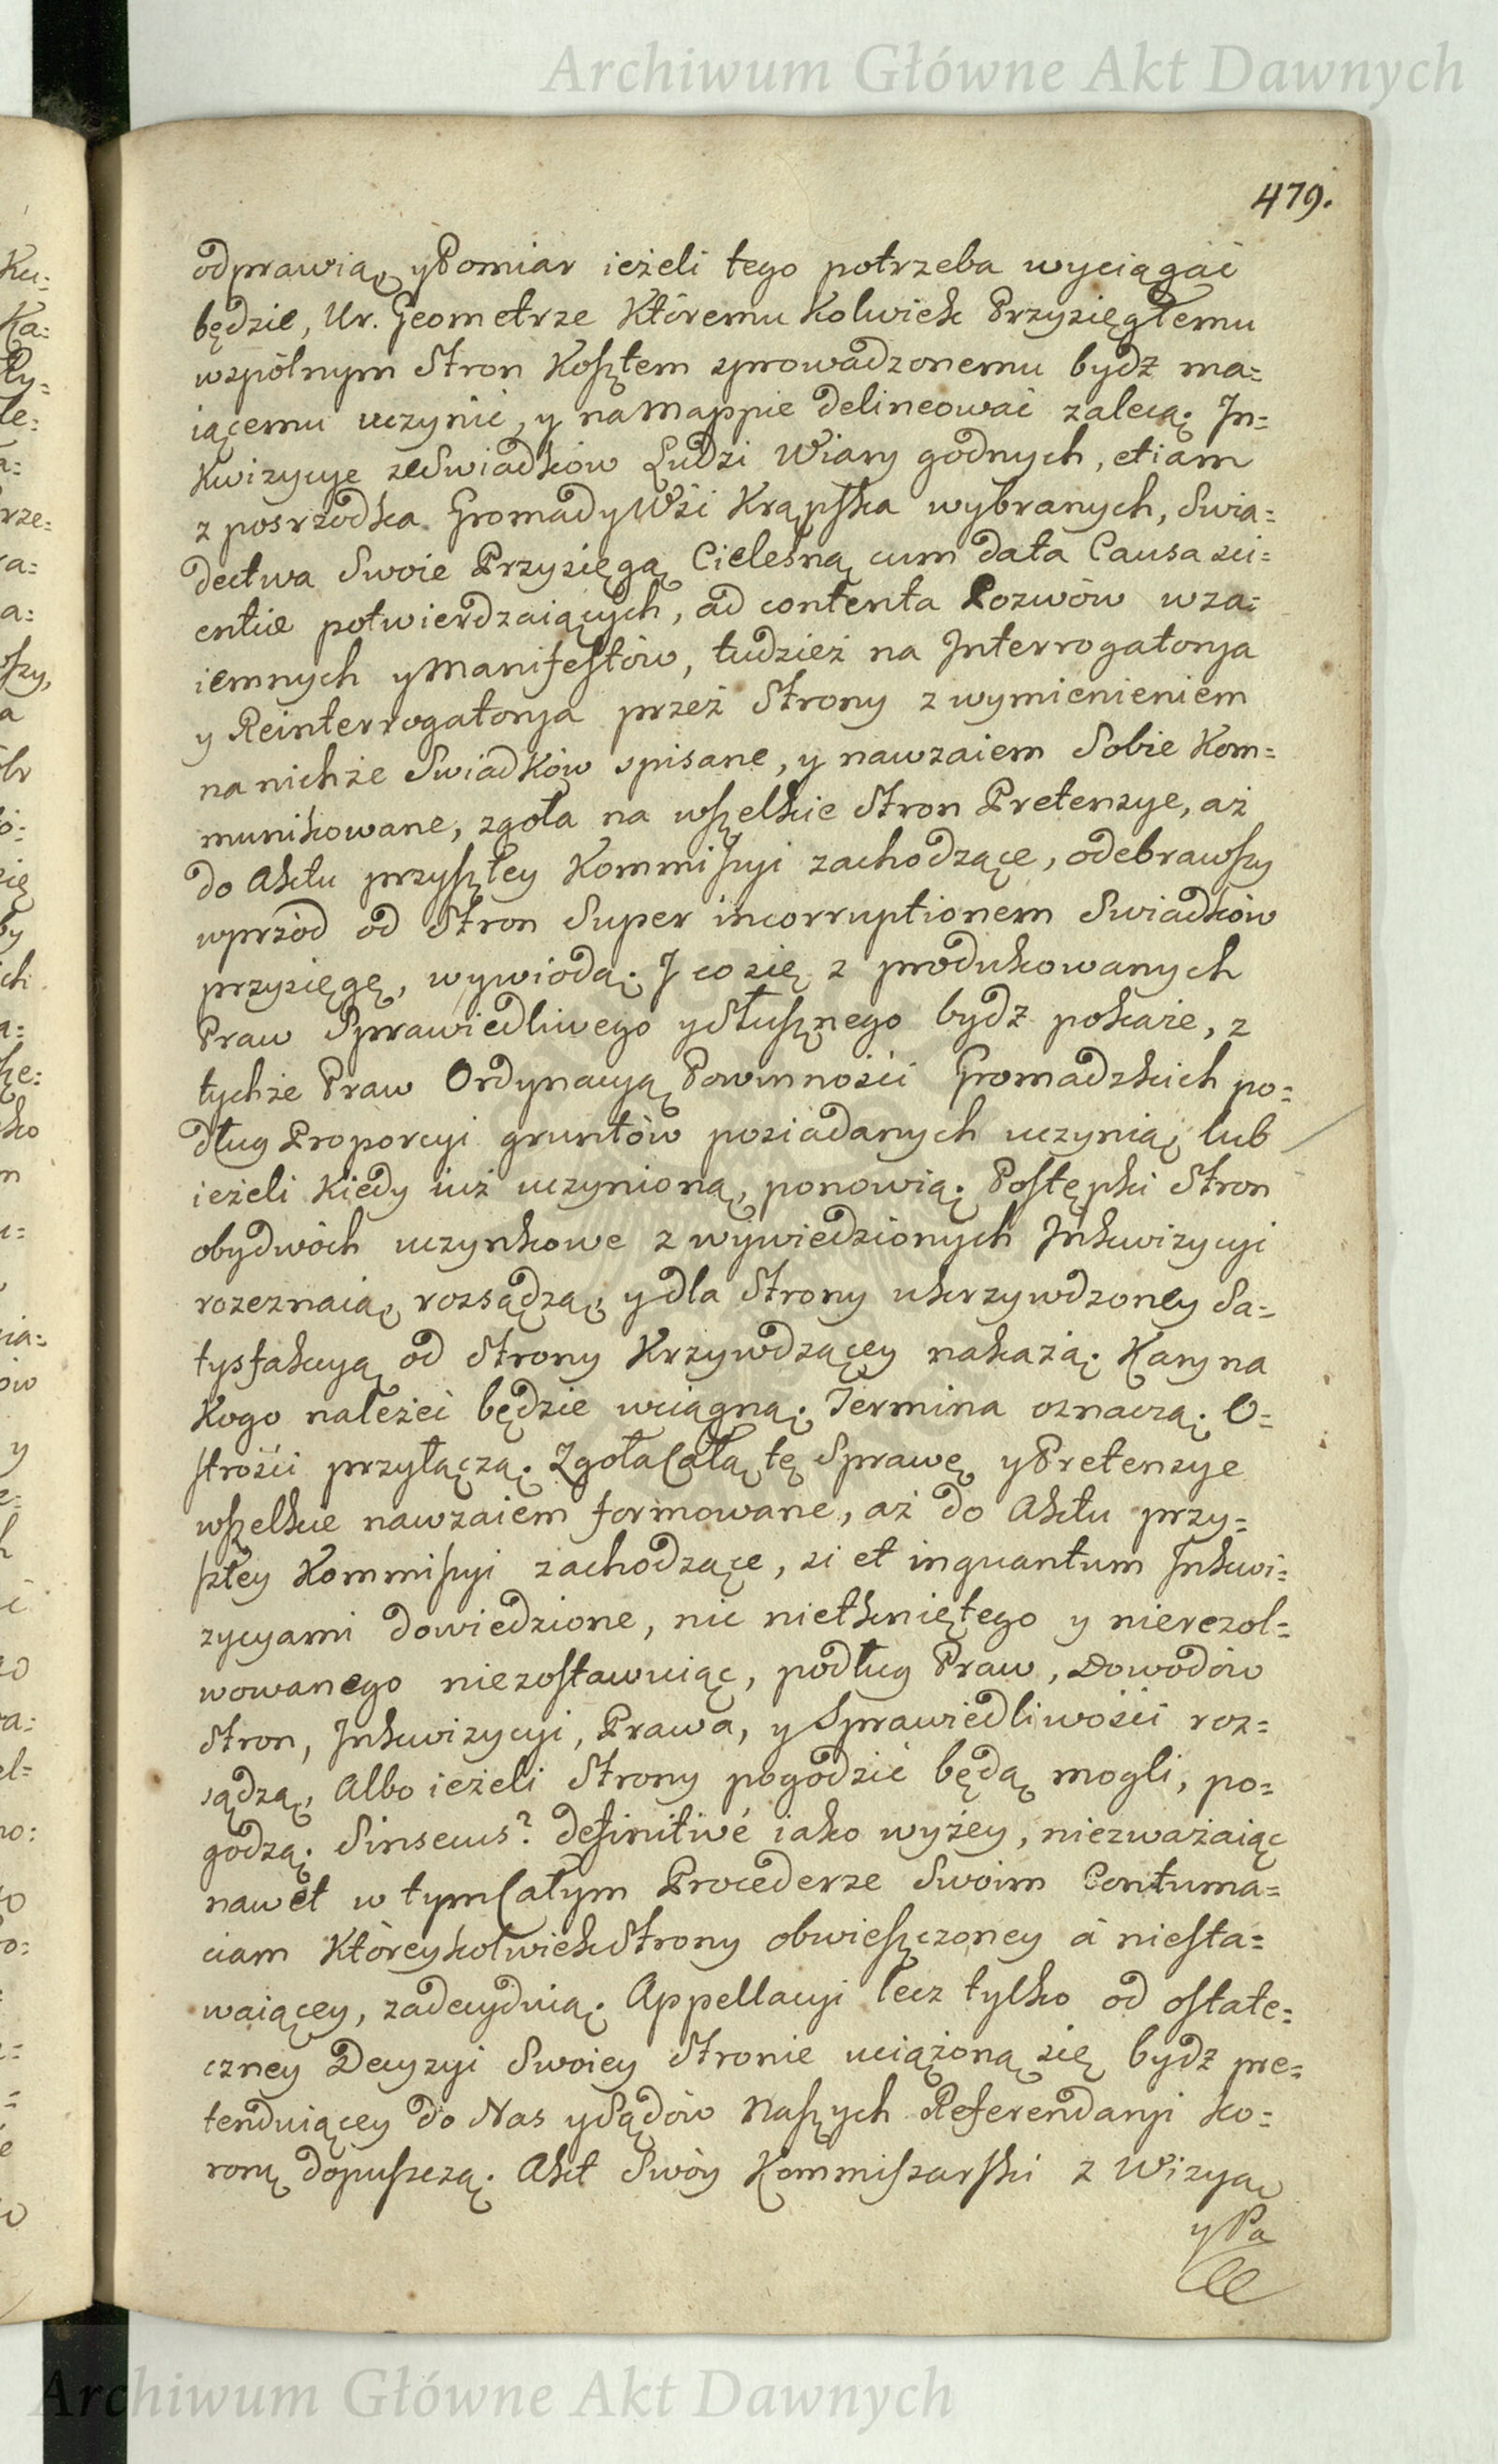 Archiwum Główne Akt Dawnych
479.
odprawią, y Pomiar ieżeli tego potrzeba wyciągać
będzie, Ur. Geometrze Któremu Kolwiek Przysięgłemu
wspólnym Stron Kosztem sprowadzonemu bydź ma=
iącemu uczynić, y na Mappie delineować zalecą. In=
kwizycye ze Swiadków Ludzi Wiary godnych, etiam
z posrzodka Gromady Wsi Krąpska wybranych, Swia=
dectwa Swoie Przysięgą Cielesną cum data Causa sci=
entiæ potwierdzaiących, ad contenta Pozwów wza=
iemnych y Manifestów, tudzież na Interrogatorya
y Reinterrogatorya przez Strony z wymienieniem
na nichże Swiadków spisane, y nawzaiem Sobie Kom=
munikowane, zgoła na wszelkie Stron Pretensye, aż
do Aktu przyszłey Kommissyi zachodzące, odebrawszy
wprzód od Stron Super incorruptionem Swiadków
przysięgę, wywiodą. I co się z produkowanych
Praw Sprawiedliwego y Słusznego bydź pokaże, z
tychże Praw Ordynacyą Powinności Gromadzkich po=
dług Proporcyi gruntów posiadanych uczynią, lub
ieżeli Kiedy iuż uczynioną, ponowią. Postępki Stron
obydwóch uczynkowe z wywiedzionych Inkwizycyi
rozeznaią, rozsądzą, y dla Strony ukrzywdzoney Sa=
tysfakcyą od Strony Krzywdzącey nakażą. Kary na
Kogo należeć będzie wciągną. Termina oznaczą. O=
strości przyłączą. Zgoła Całą tę Sprawę y Pretensye
wszelkie nawzaiem formowane, aż do Aktu przy=
szłey Kommissyi zachodzące, si et inquantum Inkwi=
zycyami dowiedzione, nic nietkniętego y nierezol=
wowanego niezostawuiąc, podług Praw, Dowodów
Stron, Inkwizycyi, Prawa, y Sprawiedliwości roz=
sądzą, Albo ieżeli Strony pogodzić będą mogli, po=
godzą. Sinsecus? definitivé iako wyżey, niezważaiąc
nawet w tym Całym Procederze Swoim Contuma=
ciam Któreykolwiek Strony obwieszczoney à niesta=
waiącey, zadecyduią. Appellacyi lecz tylko od ostate=
czney Decyzyi Swoiey Stronie uciążoną się bydź pre=
tenduiącey do Nas y Sądów Naszych Referendaryi Ko=
ronę dopuszczą. Akt Swóy Kommissarski z Wizyą
y Pa
Archiwum Główne Akt Dawnych